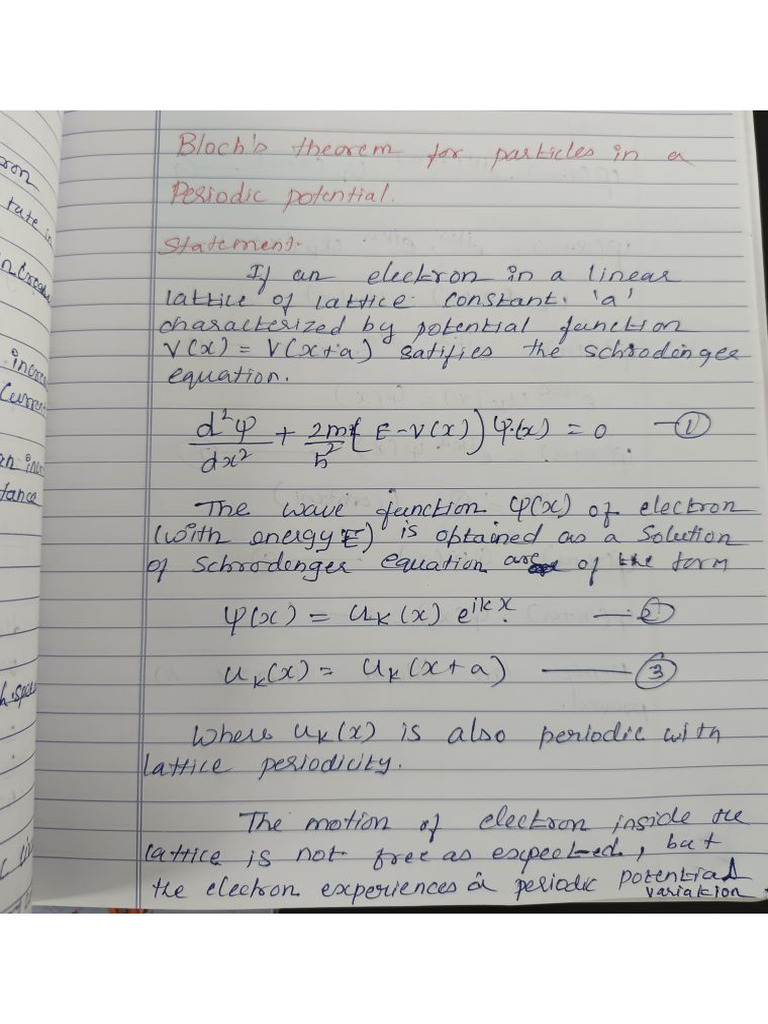 Bloch's theorem for particles in a
Periodic potential.
Statement:-
If an electron in a linear
lattice of lattice constant 'a'
characterized by potential function
V(x) = V(x+a) satifies the schrodenger
equation.
d²φ/dx² + 2m/ħ² (E-V(x)) φ(x) = 0 —①
The wave function φ(x) of electron
(with energy E) is obtained as a Solution
of Schrodenger equation are of the form
φ(x) = u_k(x) e^{ikx}. —②
u_k(x) = u_k(x+a) ——③
Where u_k(x) is also periodic with
lattice periodicity.
The motion of electron inside the
lattice is not free as expected, but
the electron experiences a periodic potential
variation
ron
tate in
incre
Curren
an inc
tance